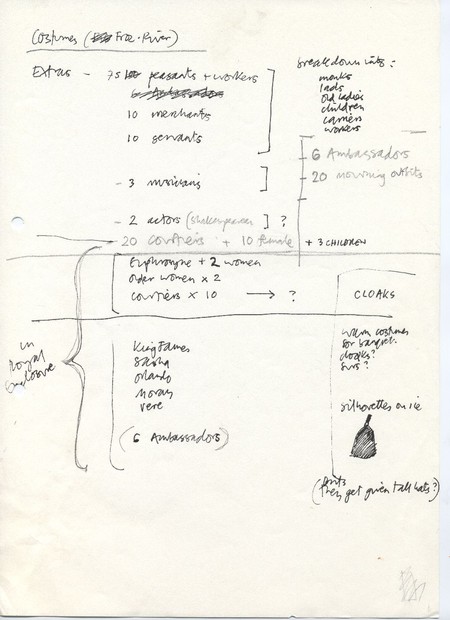 Costumes (Froz. River)
Extras - 75 peasants + workers
6 Ambassadors
10 merchants
10 servants
- 3 musicians
- 2 actors (Shakespearean) ?
20 courtiers + 10 female + 3 CHILDREN
breakdown into:
monks
lads
old ladies
children
carriers
workers
6 Ambassadors
20 mourning outfits
Euphrosyne + 2 women
older women x 2
courtiers x 10 → ?
CLOAKS
in
Royal
Enclosure
King James
Sasha
Orlando
Moray
Vere
(6 Ambassadors)
warm costumes
for banquet.
cloaks?
furs?
silhouettes on ice
(
they get given tall hats?)